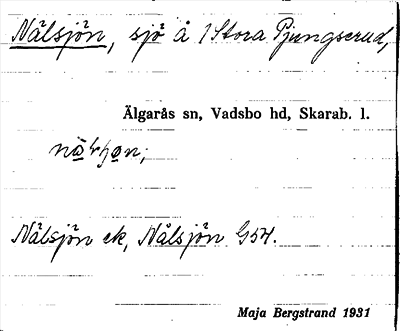 Nälsjön, sjö å 1 Stora Pjungserud,
Älgarås sn, Vadsbo hd, Skarab. l.
Nälsjön ek, Nålsjön G54.
Maja Bergstrand 1931